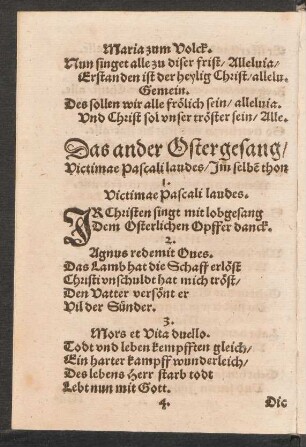 Maria zum Volck.
Nun singet alle zu diser frist/ Alleluia/
Erstanden ist der heylig Christ/ allelu.
Gemein.
Des sollen wir alle frölich sein/ alleluia.
Vnd Christ sol vnser tröster sein/ Alle.
Das ander Ostergesang/
Victimae Pascali laudes/ Im selbē thon
1.
Victimae Pascali laudes.
IR Christen singt mit lobgesang
Dem Osterlichen Opffer danck.
2.
Agnus redemit Oues.
Das Lamb hat die Schaff erlöst
Christi vnschuldt hat mich tröst/
Den Vatter versönt er
Vil der Sünder.
3.
Mors et Vita duello.
Todt vnd leben kempfften gleich/
Ein harter kampff wunderleich/
Des lebens Herr starb todt
Lebt nun mit Gott.
4. Die